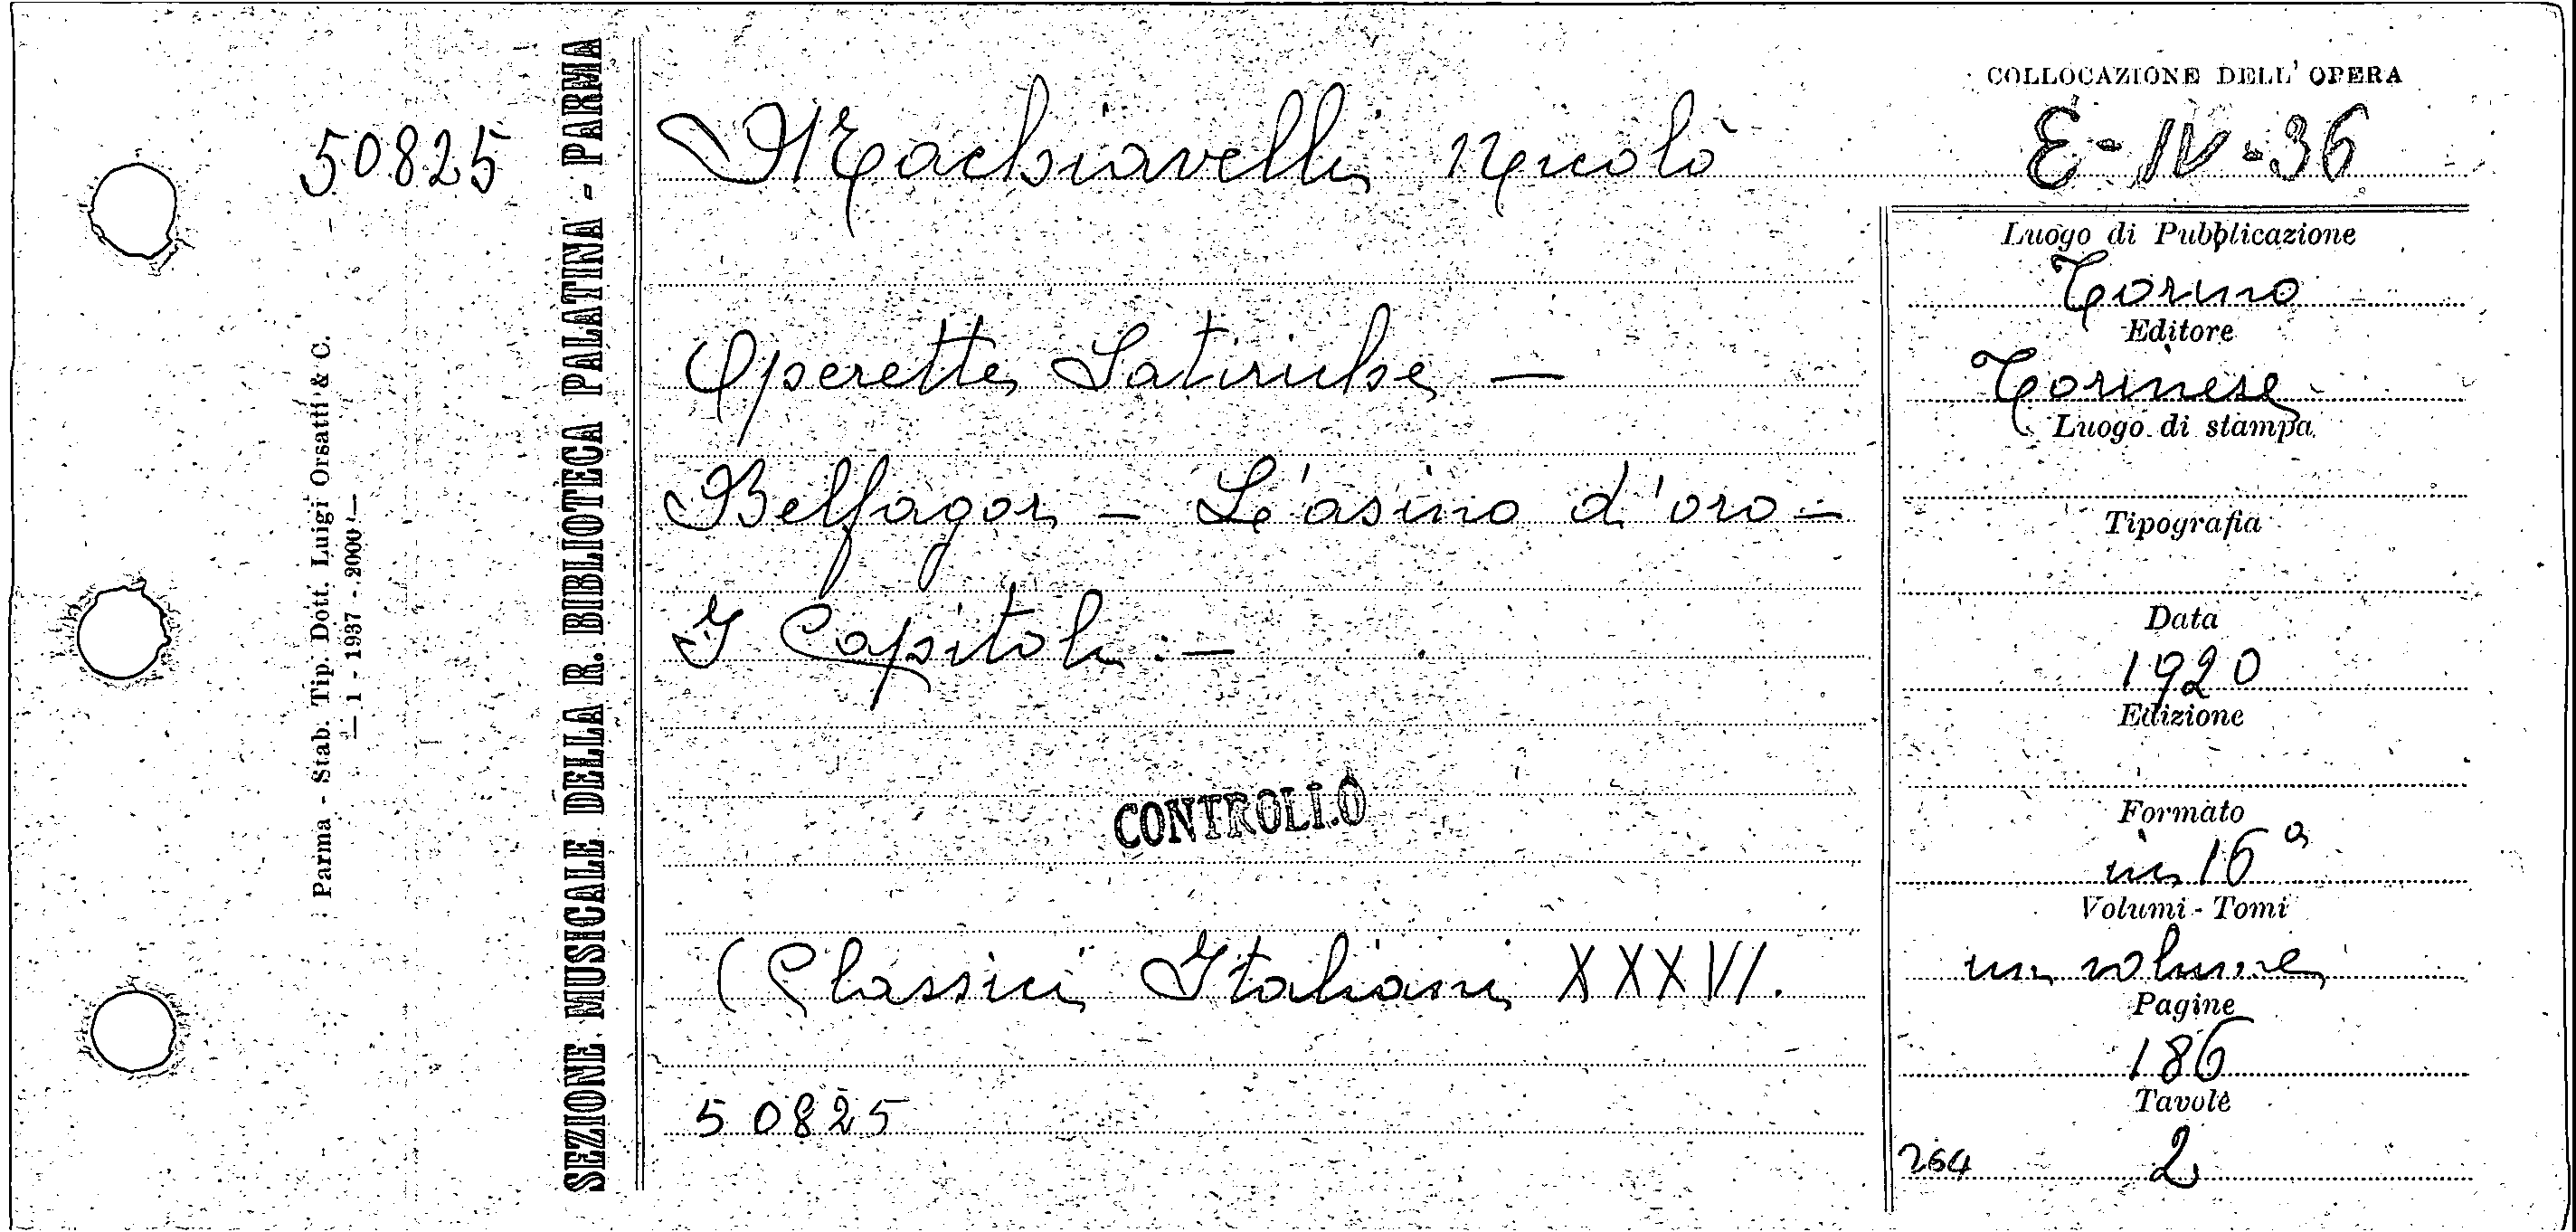 50825
Parma - Stab. Tip. Dott. Luigi Orsatti & C.
— 1 - 1937 - 2000 —
SEZIONE MUSICALE DELLA R. BIBLIOTECA PALATINA - PARMA
Machiavelli Nicolò
Operette Satiriche —
Belfagor — L'asino d'oro —
I Capitoli. —
CONTROLLO
(Classici Italiani XXXVI.
50825
COLLOCAZIONE DELL' OPERA
E - IV - 36
Luogo di Pubblicazione
Torino
Editore
Torinese
Luogo di stampa
Tipografia
Data
1920
Edizione
Formato
in 16°
Volumi - Tomi
un volume
Pagine
186
Tavole
264 2